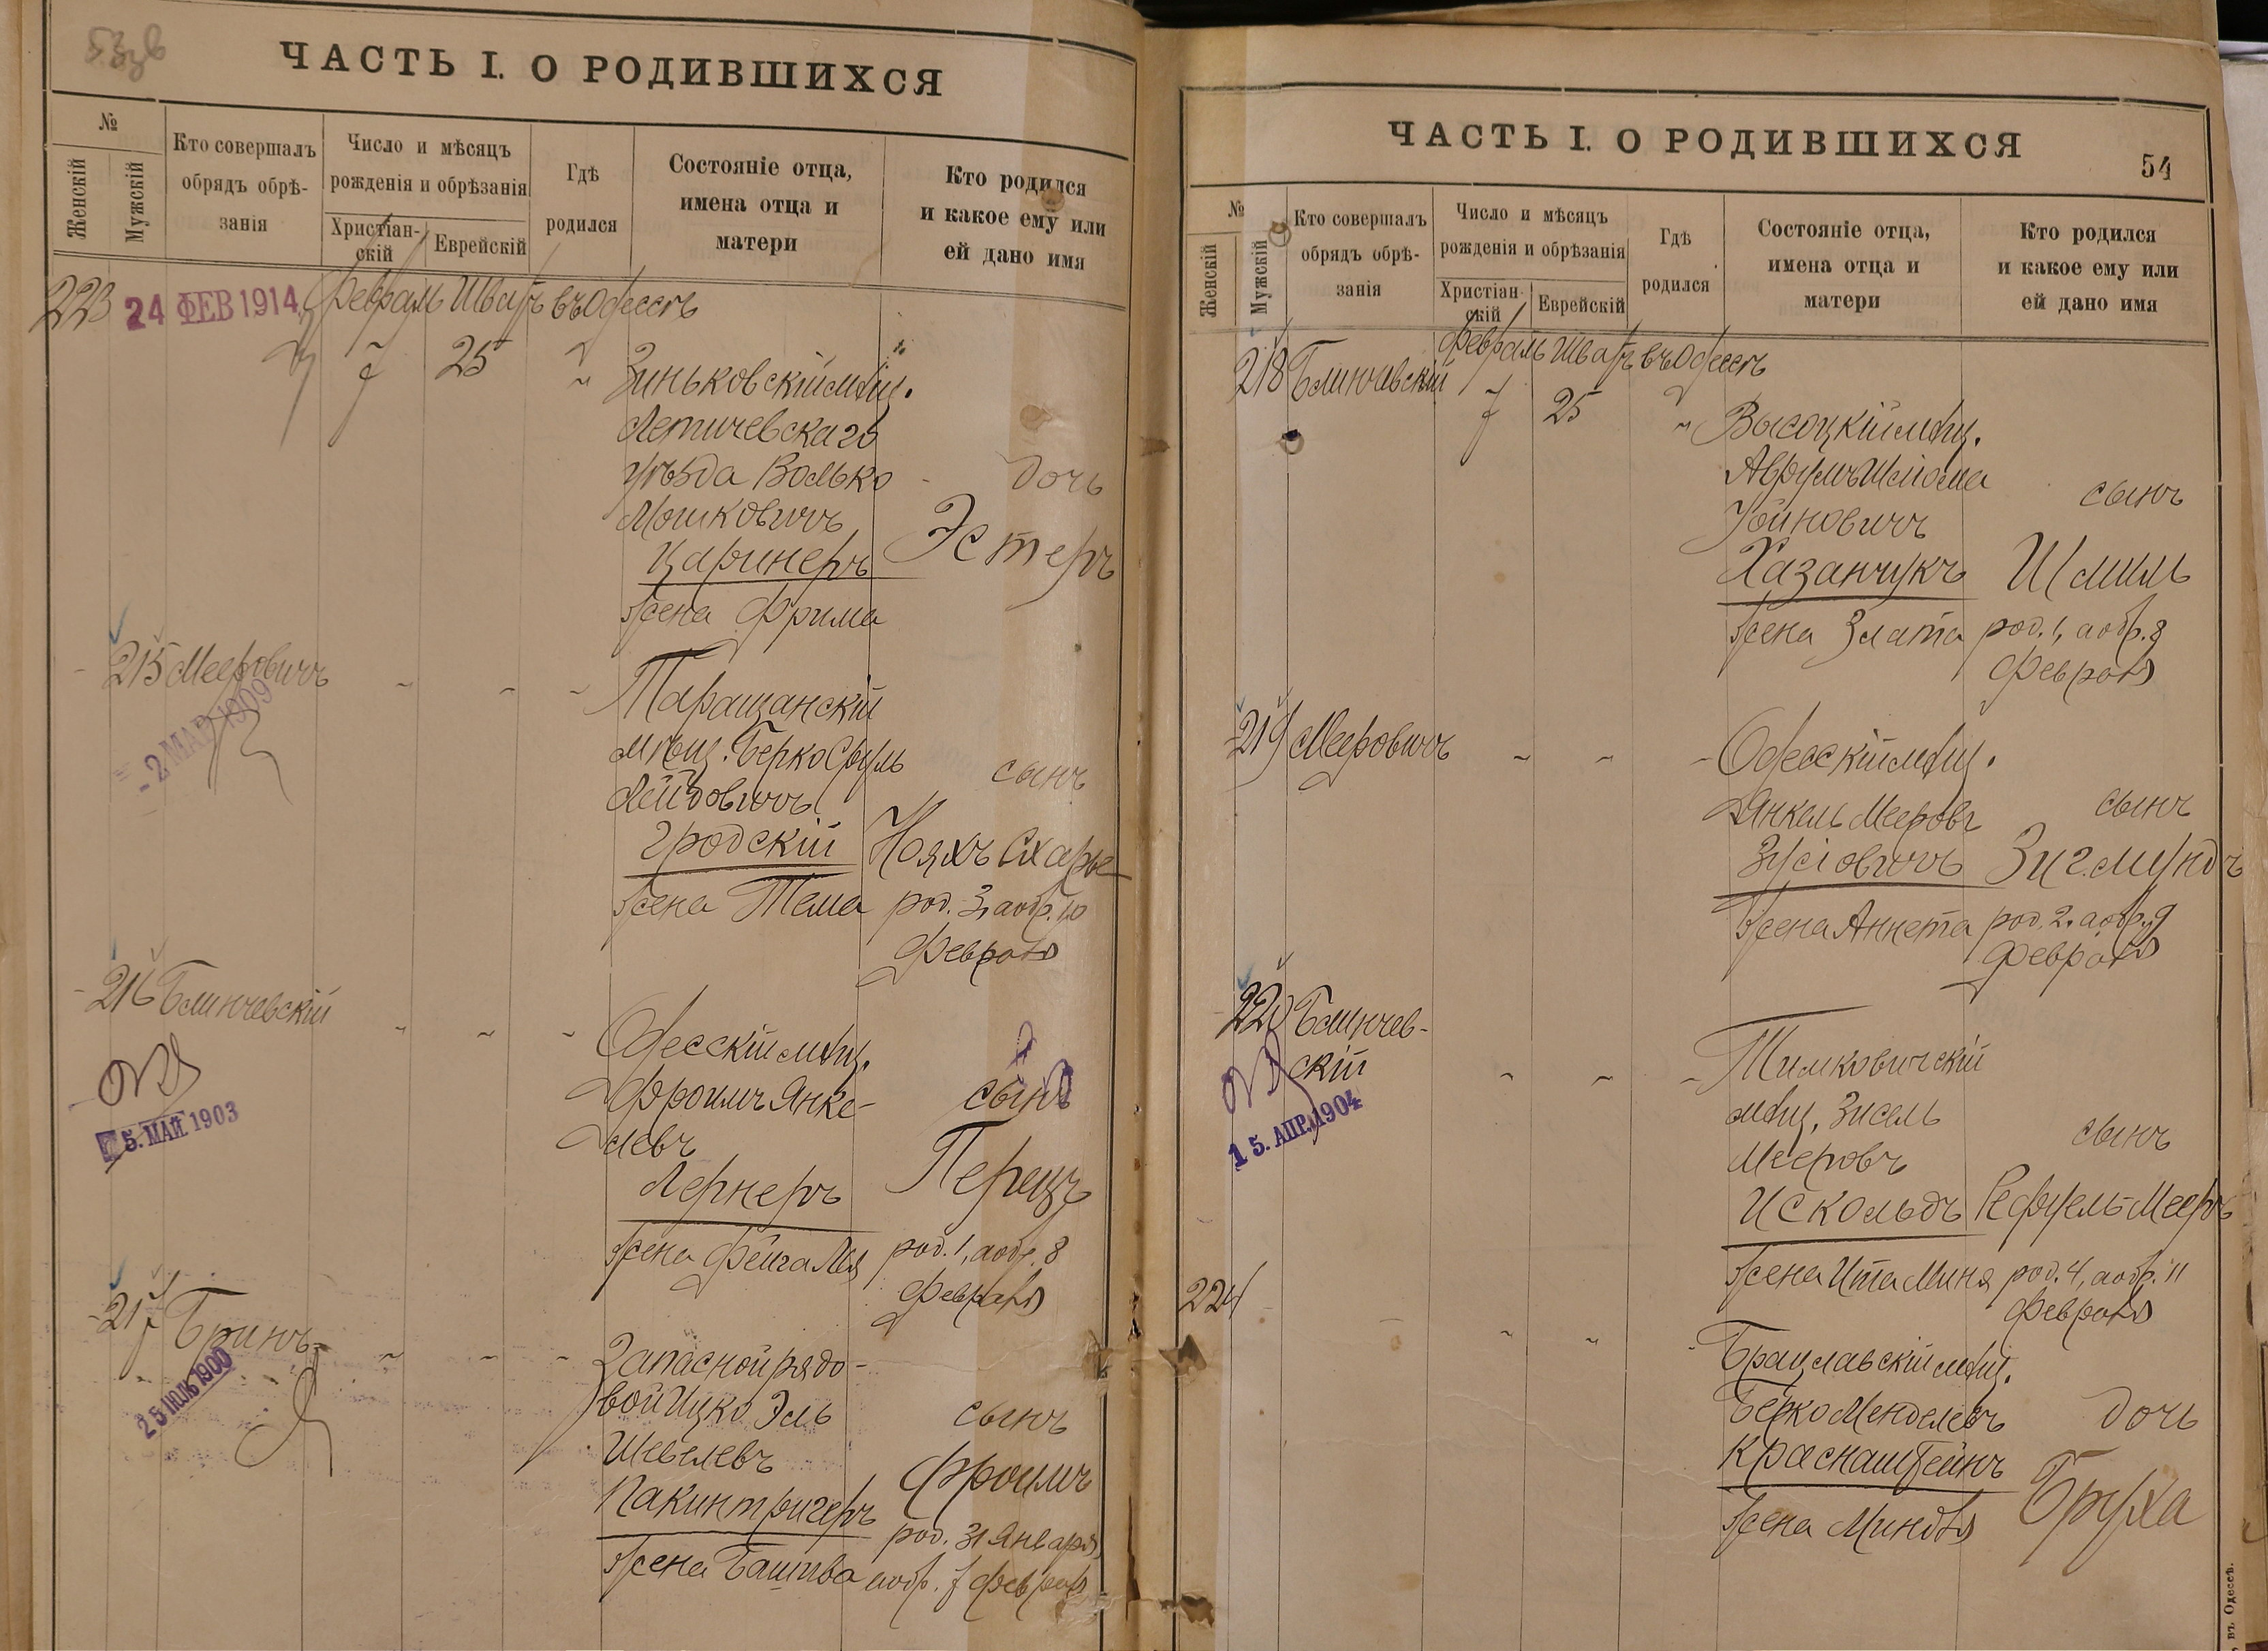 53зв
ЧАСТЬ I. О РОДИВШИХСЯ
№
Женскій
Мужскій
Кто совершалъ
обрядъ обрѣ-
занія
Число и мѣсяцъ
рожденія и обрѣзанія
Христіан-
скій
Еврейскій
Гдѣ
родился
Состояніе отца,
имена отца и
матери
Кто родился
и какое ему или
ей дано имя
223 24 ФЕВ 1914 Февраль Шватъ въ Одессѣ
7 25 Зиньковскій мѣщ.
Летичевскаго
уѣзда Волько
дочь
Мошковичъ
Царинеръ
Эстеръ
жена Фрима
215 Мееровичъ
2 МАР 1909
Таращанскій
мѣщ. Берко Сруль
сынъ
Лейбовичъ
Гродскій
Нояхъ Схарье
жена Тема
род. 3, а обр. 10
Февраля
216 Блинчевскій
5. МАЙ 1903
Одесскій мѣщ.
Фроимъ Янке-
левъ
сынъ
Лернеръ
Перецъ
жена Фейга Лея
род. 1, а обр. 8
Февраля
217 Бринъ
25 ІЮЛЬ 1900
Запасной рядо-
вой Ицко Эль
сынъ
Шевелевъ
Пакинтригеръ
Фроимъ
род. 31 Января,
жена Башива
а обр. 7 Февраля
ЧАСТЬ I. О РОДИВШИХСЯ
54
№
Женскій
Мужскій
Кто совершалъ
обрядъ обрѣ-
занія
Число и мѣсяцъ
рожденія и обрѣзанія
Христіан-
скій
Еврейскій
Гдѣ
родился
Состояніе отца,
имена отца и
матери
Кто родился
и какое ему или
ей дано имя
Февраль Шватъ въ Одессѣ
218 Блинчевскій
7 25 Высоцкій мѣщ.
Аврумъ Шліома
сынъ
Уойновичъ
Хазанчукъ
Шмиль
жена Злата
род. 1, а обр. 8
Февраля
219 Мееровичъ
Одесскій мѣщ.
Янкель Мееровъ
сынъ
Зусіовичъ
Зигмундъ
жена Аннета
род. 2, а обр. 9
Февраля
220 Блинчев-
скій
15. АПР. 1904
Тимковичскій
мѣщ. Зисель
сынъ
Мееровъ
Искольдъ
Рефуель-Мееръ
жена Ита Миня
род. 4, а обр. 11
Февраля
224
Брацлавскій мѣщ.
Берко Менделевъ
дочь
Краснаштейнъ
Бруха
жена Миндля
, въ Одессѣ.